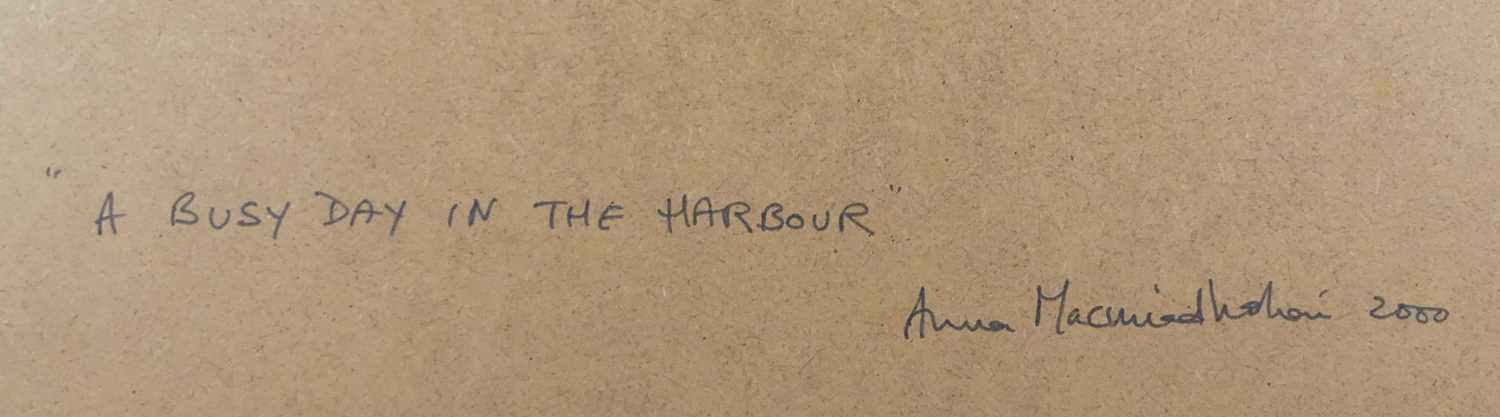 "A BUSY DAY IN THE HARBOUR"
Anna Macmiadhachain 2000